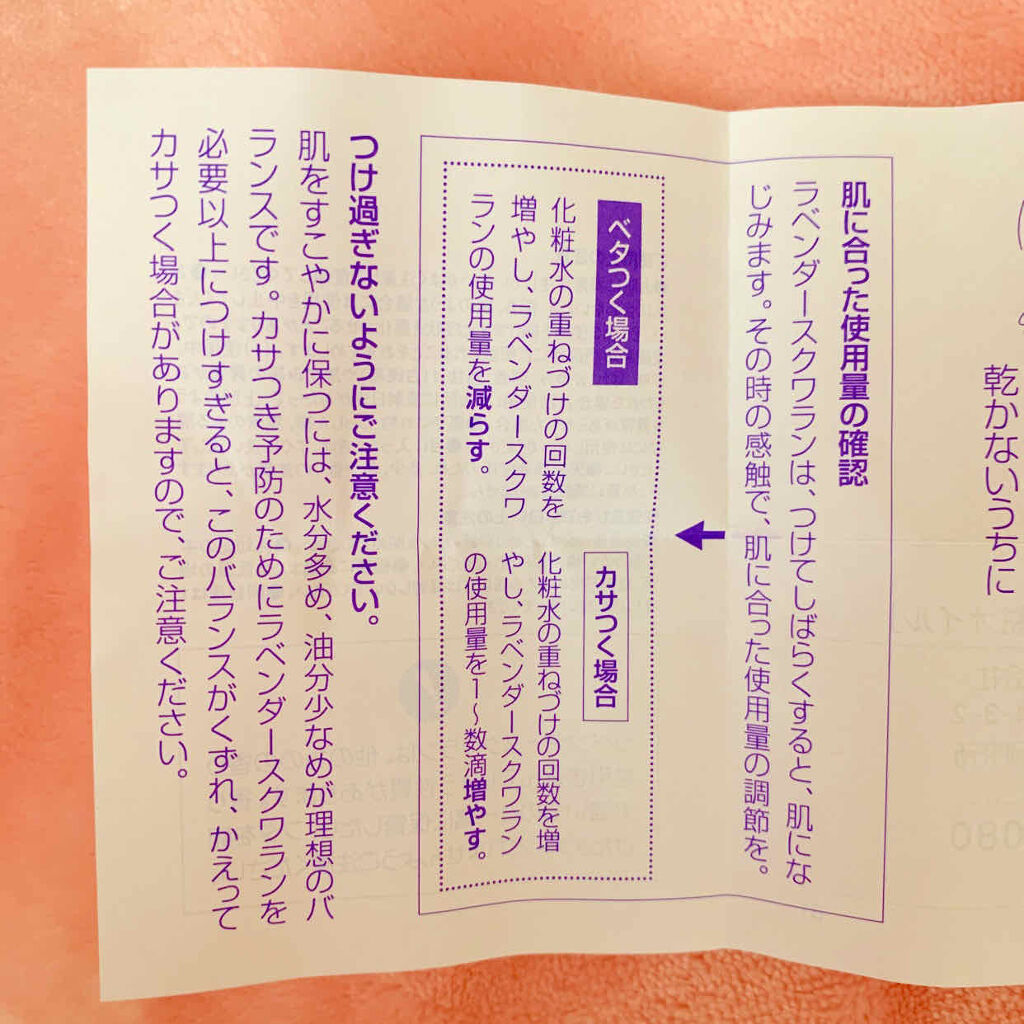 乾かないうちに
肌に合った使用量の確認
ラベンダースクワランは、つけてしばらくすると、肌にな
じみます。その時の感触で、肌に合った使用量の調節を。
ベタつく場合
化粧水の重ねづけの回数を
増やし、ラベンダースクワ
ランの使用量を減らす。
カサつく場合
化粧水の重ねづけの回数を増
やし、ラベンダースクワラン
の使用量を1〜数滴増やす。
つけ過ぎないようにご注意ください。
肌をすこやかに保つには、水分多め、油分少なめが理想のバ
ランスです。カサつき予防のためにラベンダースクワランを
必要以上につけすぎると、このバランスがくずれ、かえって
カサつく場合がありますので、ご注意ください。